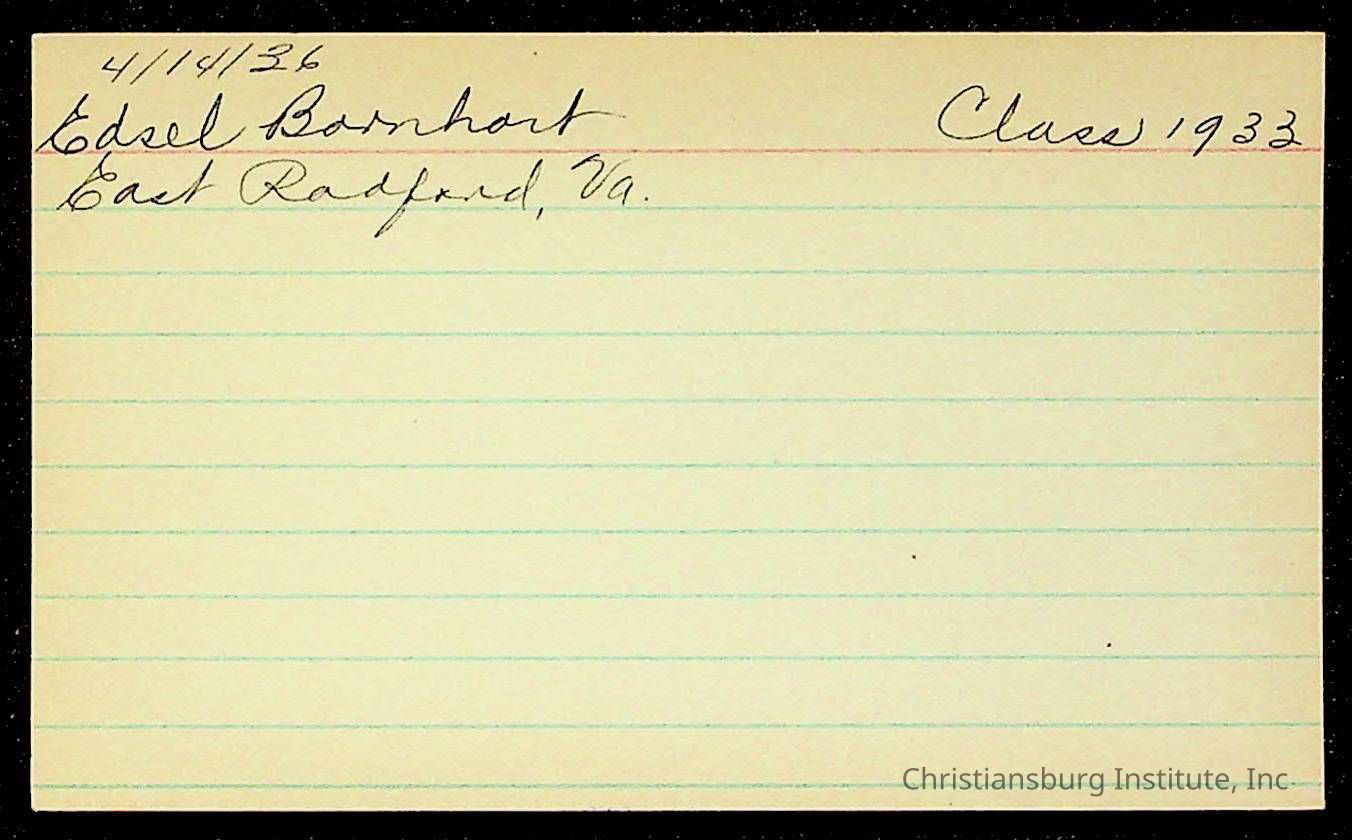 4/14/36
Edsel Barnhart Class 1933
East Radford, Va.
Christiansburg Institute, Inc.